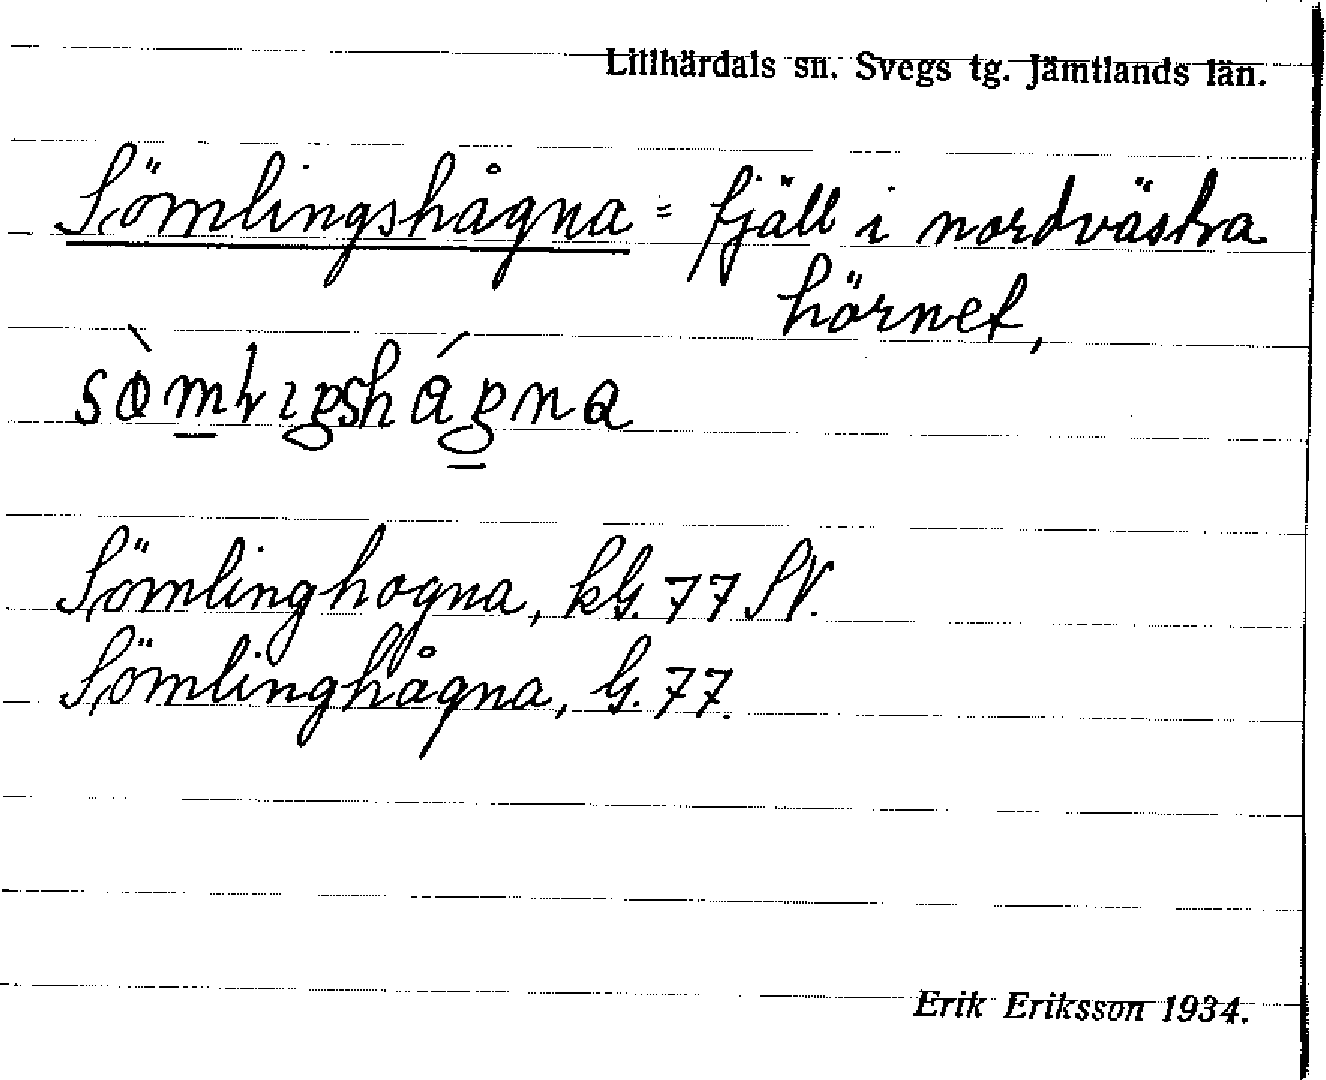 Lillhärdals sn. Svegs tg. Jämtlands län.
Sömlingshågna = fjäll i nordvästra
hörnet,
Sömlinghogna, kG. 77 SV.
Sömlinghågna, G. 77.
Erik Eriksson 1934.